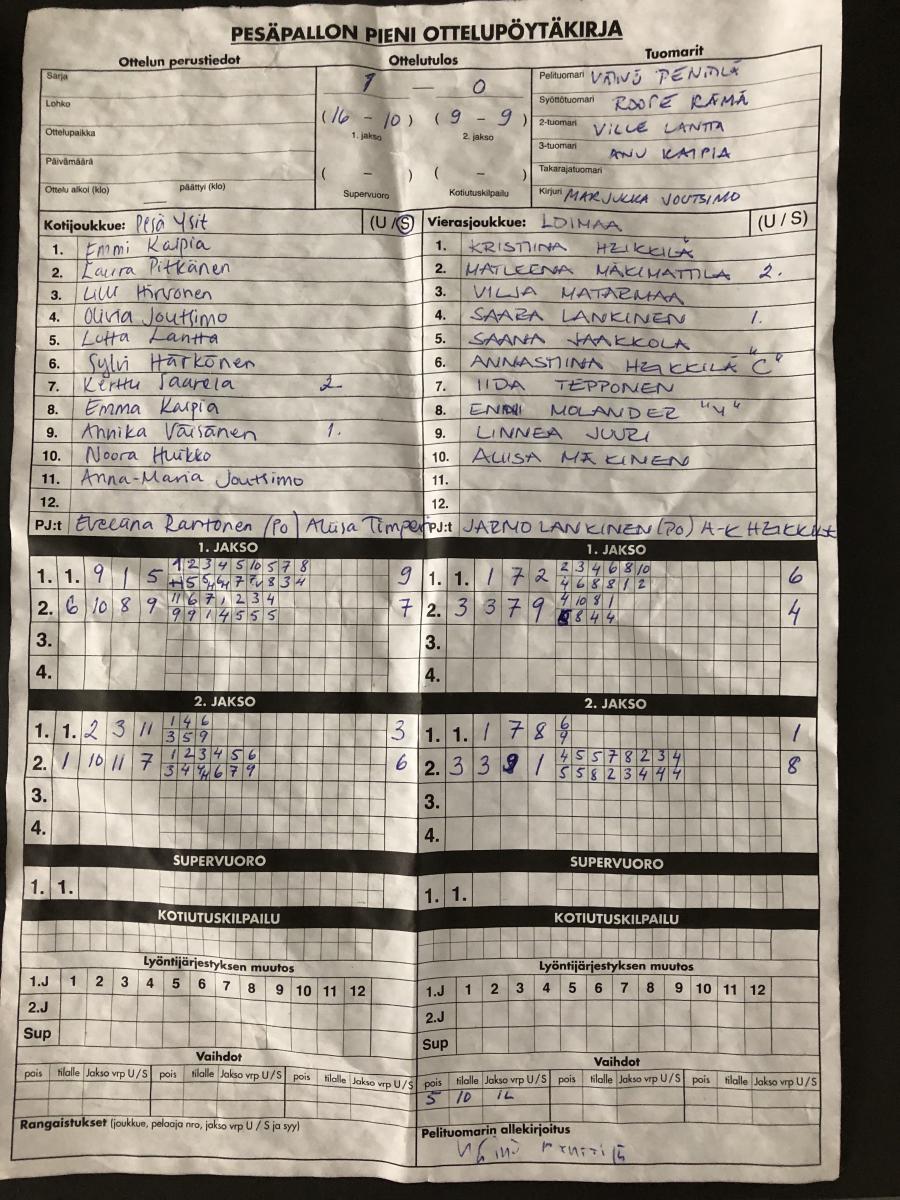 PESÄPALLON PIENI OTTELUPÖYTÄKIRJA
Ottelun perustiedot
Ottelutulos
Tuomarit
Sarja
Lohko
Ottelupaikka
Päivämäärä
Ottelu alkoi (klo) päättyi (klo)
1 — 0
(16 - 10) (9 - 9)
1. jakso 2. jakso
( - ) ( - )
Supervuoro Kotiutuskilpailu
Pelituomari VÄINÖ PENTTILÄ
Syöttötuomari ROOPE RÄMÄ
2-tuomari VILLE LANTTA
3-tuomari ANU KAIPIA
Takarajatuomari
Kirjuri MARJUKKA JOUTSIMO
Kotijoukkue: Pesä Ysit (U/S)
1. Emmi Kaipia
2. Laura Pitkänen
3. Lilli Hirvonen
4. Olivia Joutsimo
5. Lotta Lantta
6. Sylvi Härkönen
7. Kerttu Saarela 2
8. Emma Kaipia
9. Annika Väisänen 1.
10. Noora Huikko
11. Anna-Maria Joutsimo
12.
PJ:t Eveliina Rantonen (Po) Aliisa Timperi
Vierasjoukkue: LOIMAA (U/S)
1. KRISTIINA HEIKKILÄ
2. MATLEENA MÄKIMATTILA 2.
3. VILJA MATARMAA
4. SAARA LANKINEN 1.
5. SAANA JAAKKOLA
6. ANNASTIINA HEIKKILÄ "C"
7. IIDA TEPPONEN
8. ENNI MOLANDER "Y"
9. LINNEA JUURI
10. ALIISA MÄKINEN
11.
12.
PJ:t JARMO LANKINEN (PO) A-K HEIKKILÄ
1. JAKSO
1 2 3 4 5 10 5 7 8
1. 1. 9 1 5 9
2. 6 10 8 9 7
11 6 7 1 2 3 4
9 9 1 4 5 5 5
3.
4.
1. JAKSO
2 3 4 6 8 10
1. 1. 1 7 2 6
4 6 8 8 1 2
4 10 8 1
2. 3 3 7 9 4
8 4 4
3.
4.
2. JAKSO
1 4 6
1. 1. 2 3 11 3
3 5 9
1 2 3 4 5 6
2. 1 10 11 7 6
3 4 4 6 7 9
3.
4.
2. JAKSO
6
1. 1. 1 7 8 1
9
4 5 5 7 8 2 3 4
2. 3 3 9 1 8
5 5 8 2 3 4 4 4
3.
4.
SUPERVUORO
1. 1.
SUPERVUORO
1. 1.
KOTIUTUSKILPAILU
KOTIUTUSKILPAILU
Lyöntijärjestyksen muutos
1.J 1 2 3 4 5 6 7 8 9 10 11 12
2.J
Sup
Lyöntijärjestyksen muutos
1.J 1 2 3 4 5 6 7 8 9 10 11 12
2.J
Sup
Vaihdot
pois tilalle Jakso vrp U/S pois tilalle Jakso vrp U/S pois tilalle Jakso vrp U/S
Vaihdot
pois tilalle Jakso vrp U/S pois tilalle Jakso vrp U/S pois tilalle Jakso vrp U/S
5 10
Rangaistukset (joukkue, pelaaja nro, jakso vrp U / S ja syy)
Pelituomarin allekirjoitus